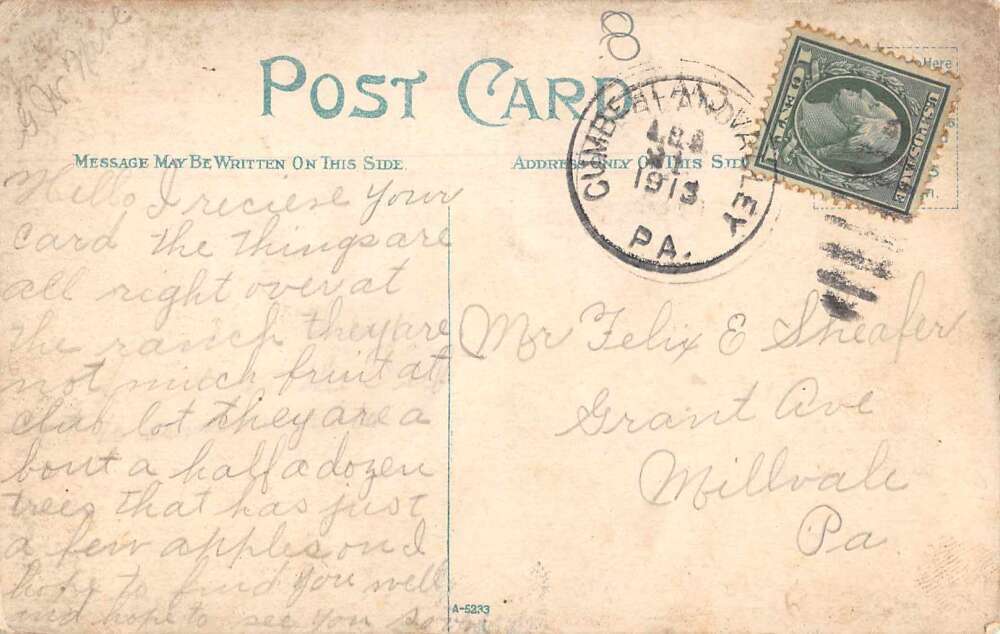 8
POST CARD
Here
MESSAGE MAY BE WRITTEN ON THIS SIDE
ADDRESS ONLY ON THIS SIDE
CUMBERLAND VALLEY
1913
PA.
U.S. POSTAGE
Hello I reciese your
card the things are
all right over at
the ranch they are
not much fruit at
club lot they are a
bout a half a dozen
trees that has just
a few apples on I
hope to find you well
and hope to see you soon
Mr Felix E Sheafer
Grant Ave
Millvale
Pa
A-5233